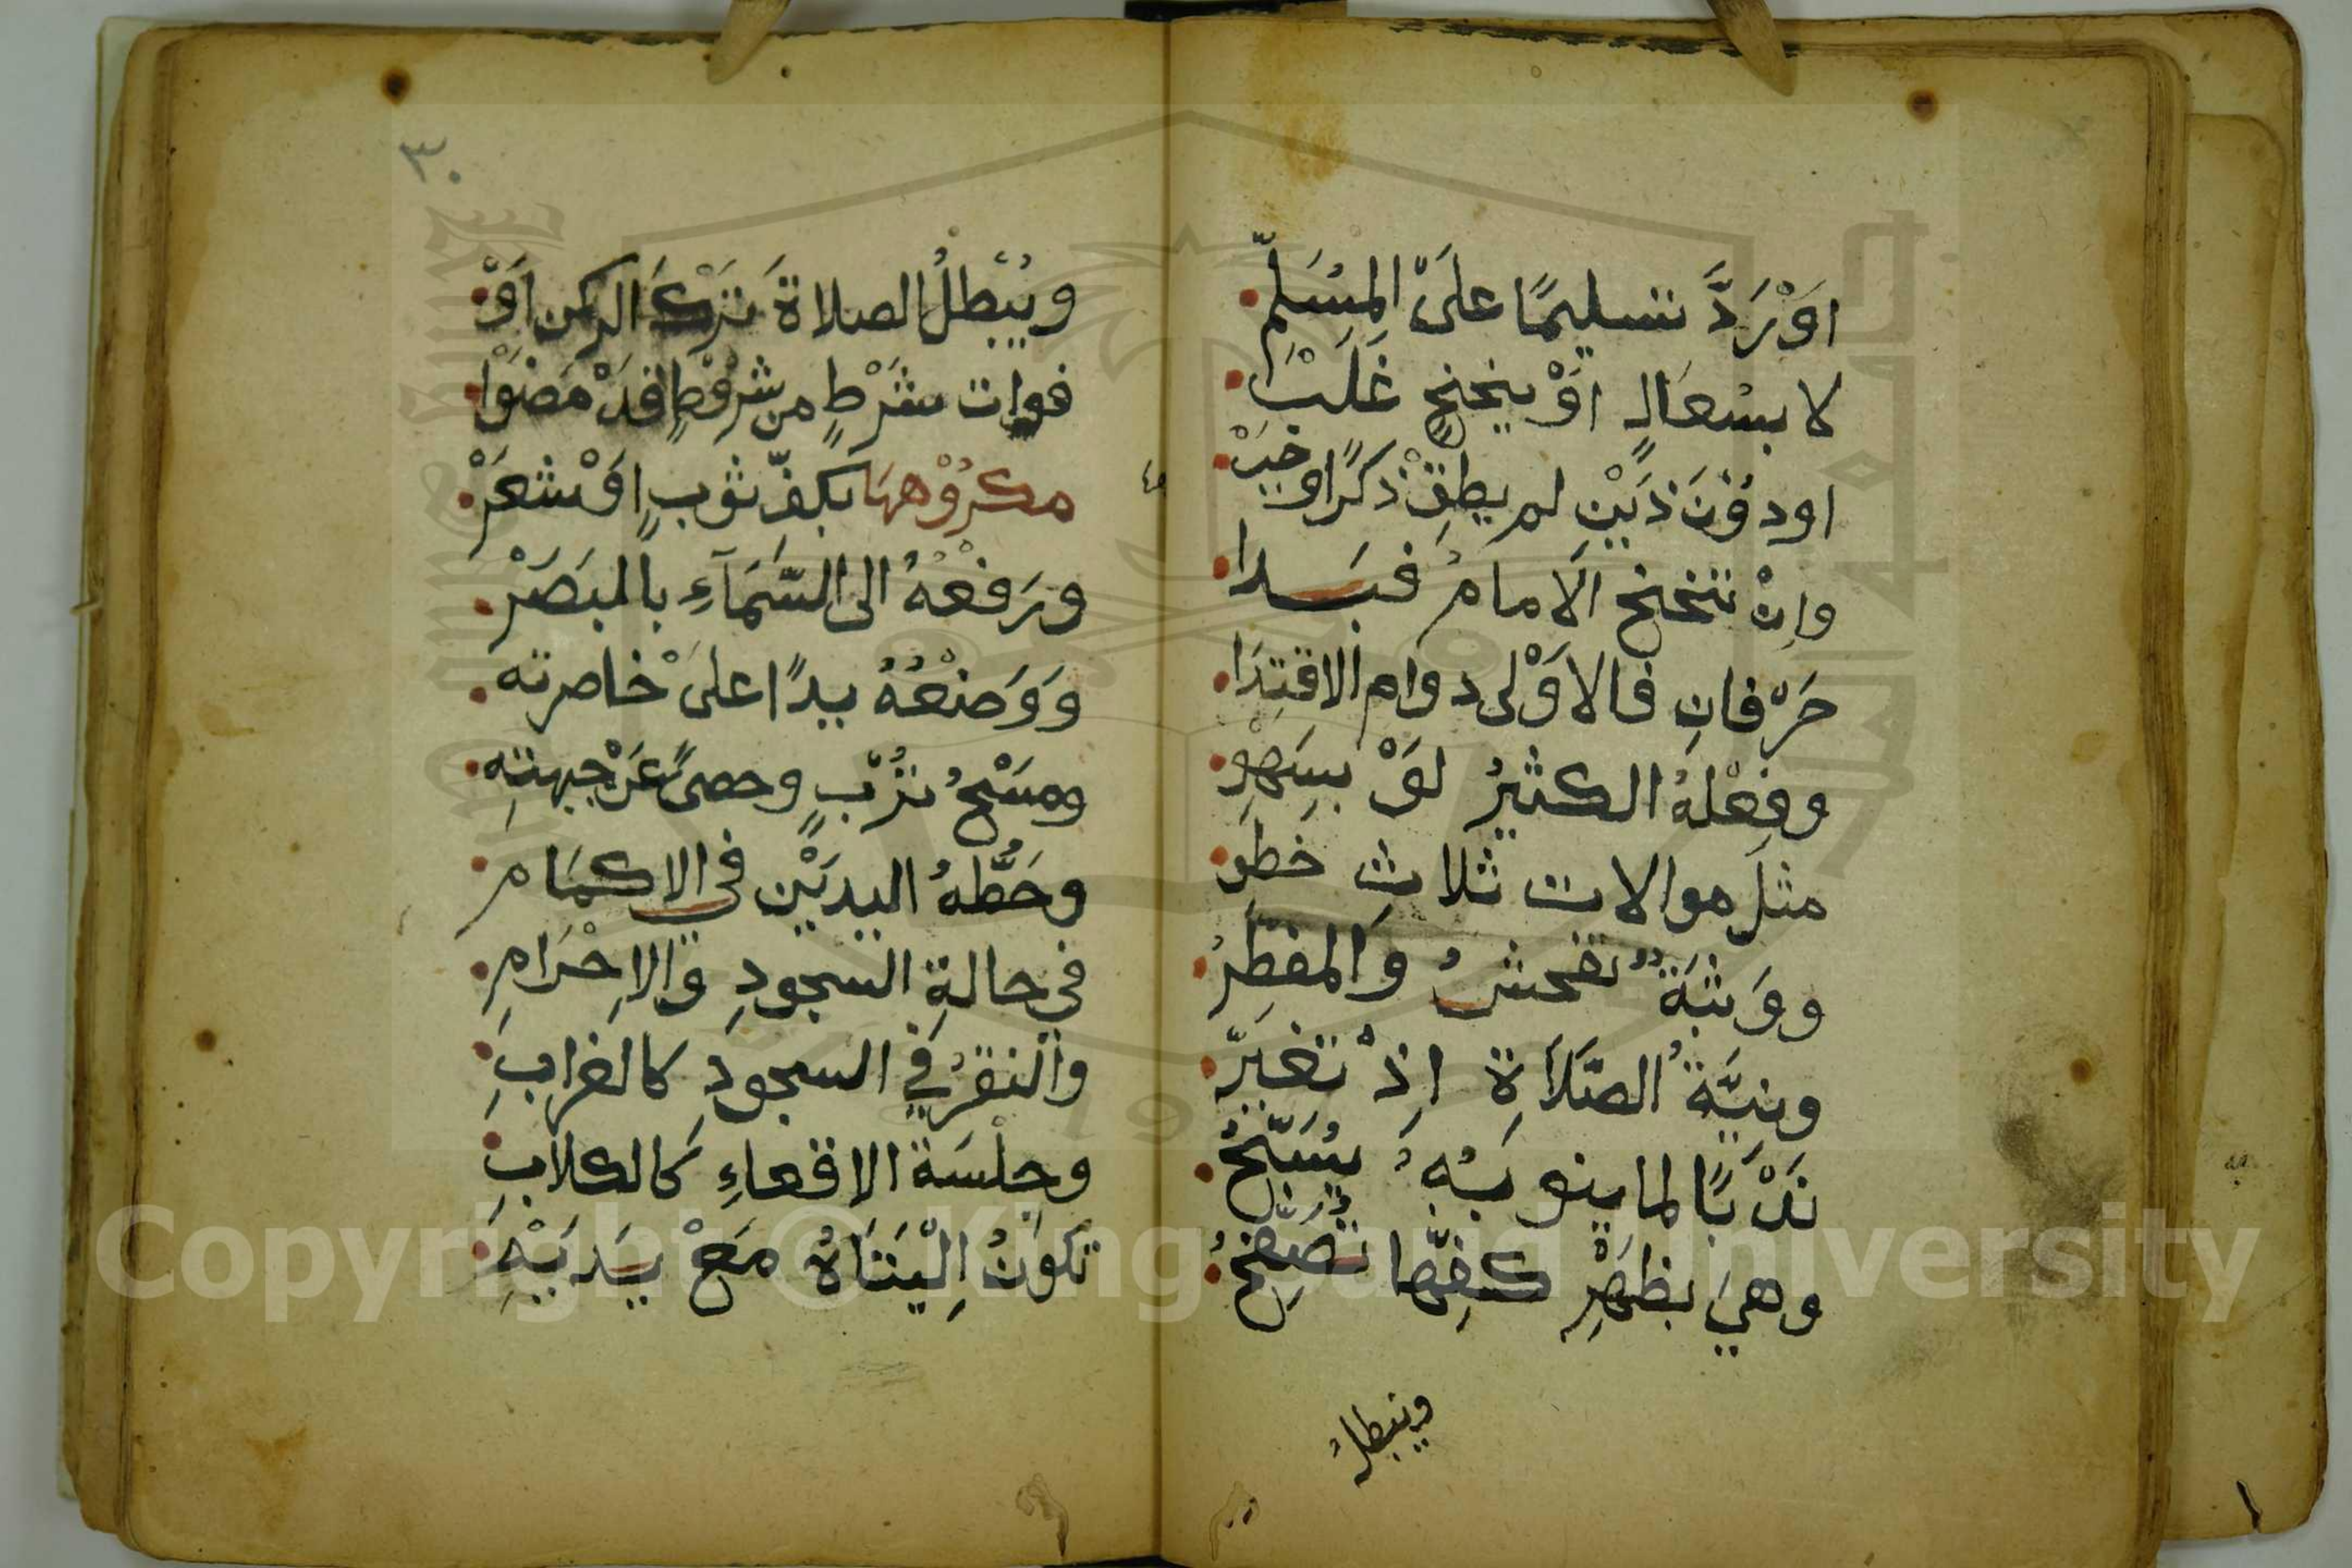 اَوْرَدَّ تسليمًا علىَ المُسَلِّمِ
لا بسُعَالٍ اوْ تنحنحٍ غَلَبْ
او دوُنَ ذَيْنِ لم يطِقْ ذكرًا وجَبْ
وإنْ تنحنح الامامُ فبَدا
حَرْفانِ فالاَوْلى دوام الاقتِدَا
وفعْلهُ الكثيرُ لوَْ بسَهْوِ
مثلَ موالات ثلاثِ خطْوِ
ووَثبَةٌ تفحشُ والمفطِّرُ
ونيَّةُ الصَّلاَةِ اذْ تغيّرُ
نَدْبًا لما ينوبُهُ يُسَبِّحُ
وهيَ بظهْرِ كفِّها تُصَفِّحُ
ويبطلُ
٣٠
ويُبْطلُ الصلاةَ تَرْكُ الركن اَوْ
فوات شَرْطٍ من شُرُوْطٍ قدْ مَضَوْا
مكرُوْهها بكفِّ ثوبٍ اوَْ شعَرْ
ورَفعُهُ الى السَّمَآءِ بالبَصَرْ
وَوَضعُهُ يدًا علىَ خاصرته
ومسْحُ تُرْبٍ وحصىً عَنْ جبهتهِ
وحَطُّهُ اليديَْنِ في الاكمَامِ
في حالةِ السجودِ والاِحْرَامِ
والنقرُ في السجودِ كالغرابِ
وجلْسَة الاقعاءِ كالكلابِ
تكوَنُ اِلْيَتَاهُ مَعْ يدَيْهِ
Copyright © King Saud University